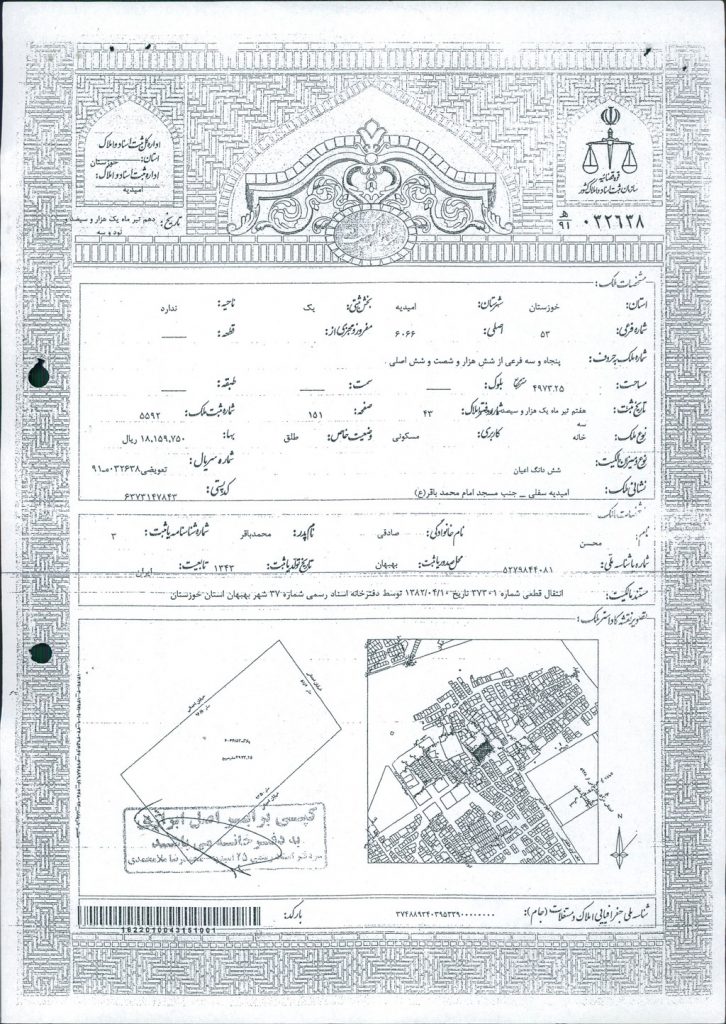 قوه قضائیه
سازمان ثبت اسناد و املاک کشور
۰۳۲۶۳۸ ه‍ ۹۱
اداره کل ثبت اسناد و املاک
استان: خوزستان
اداره ثبت اسناد و املاک:
امیدیه
تاریخ: دهم تیر ماه یک هزار و سیصد و
نود و سه
مشخصات ملک:
استان: خوزستان شهرستان: امیدیه بخش ثبتی: یک ناحیه: ندارد
شماره فرعی: ۵۳ اصلی: ۶۰۶۶ مفروز و مجزی از: قطعه:
شماره ملک بحروف: پنجاه و سه فرعی از شش هزار و شصت و شش اصلی
مساحت: ۴۹۷۳.۲۵ بلوک: سمت: طبقه:
تاریخ ثبت: هفتم تیر ماه یک هزار و سیصد شماره دفتر املاک: ۴۳ صفحه: ۱۵۱ شماره ثبت ملک: ۵۵۹۲
سه
نوع ملک: خانه کاربری: مسکونی وضعیت خاص: طلق بها: ۱۸,۱۵۹,۷۵۰ ریال
نوع و میزان مالکیت: شش دانگ اعیان شماره سریال: تعویضی ۰۳۲۶۳۸-ه-۹۱
نشانی ملک: امیدیه سفلی ــ جنب مسجد امام محمد باقر(ع) کد پستی: ۶۳۷۳۱۴۷۸۴۳
مشخصات مالک:
نام: محسن نام خانوادگی: صادقی نام پدر: محمدباقر شماره شناسنامه یا ثبت: ۳
شماره یا شناسه ملی: ۵۲۷۹۸۴۴۰۸۱ محل صدور یا ثبت: بهبهان تاریخ تولد یا ثبت: ۱۳۴۳ تابعیت: ایران
مستند مالکیت: انتقال قطعی شماره ۳۷۳۰۱ تاریخ ۱۳۸۲/۰۴/۱۰ توسط دفترخانه اسناد رسمی شماره ۳۷ شهر بهبهان استان خوزستان
تصویر نقشه کاداستر ملک:
N
کپی برابر اصل ابرازی
به دفترخانه می باشد
شناسه ملی جغرافیایی املاک و مستغلات (جام): ۳۷۴۸۸۹۳۴۰۳۹۵۳۳۹۰۰۰۰۰۰۰۰۰
بارکد:
1622010043151001